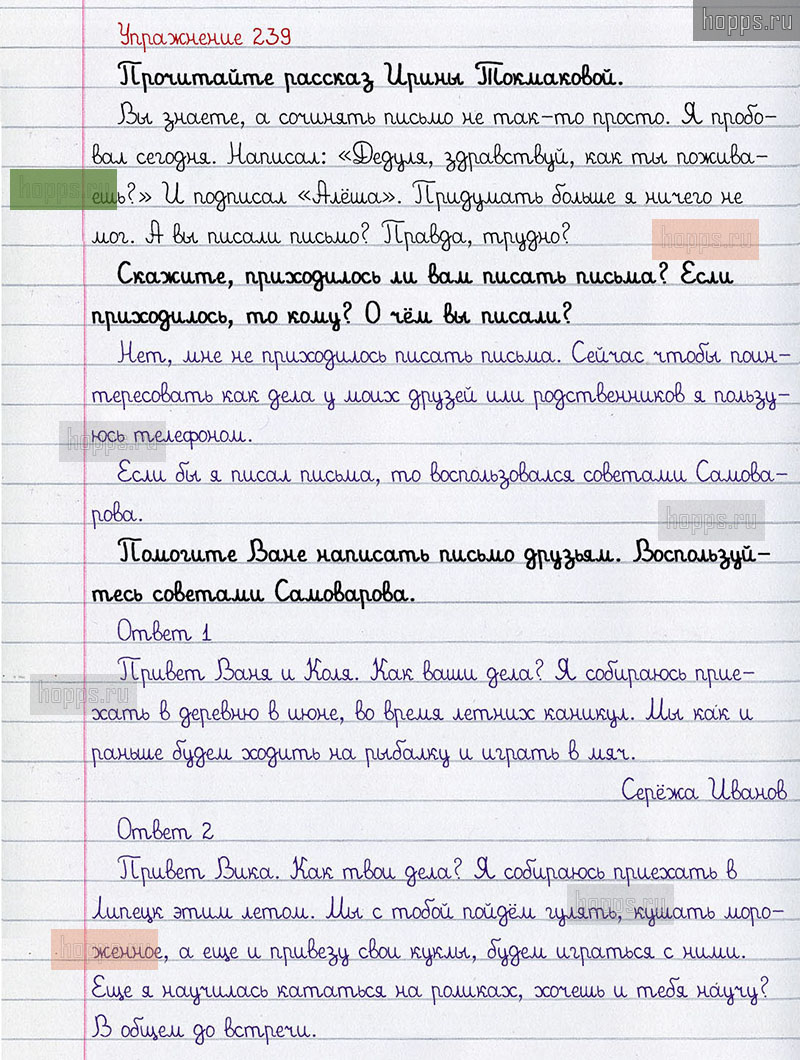 hopps.ru
Упражнение 239
Прочитайте рассказ Ирины Токмаковой.
Вы знаете, а сочинять письмо не так-то просто. Я пробо-
вал сегодня. Написал: «Дедуля, здравствуй, как ты пожива-
ешь?» И подписал «Алёша». Придумать больше я ничего не
мог. А вы писали письмо? Правда, трудно?
Скажите, приходилось ли вам писать письма? Если
приходилось, то кому? О чём вы писали?
Нет, мне не приходилось писать письма. Сейчас чтобы поин-
тересовать как дела у моих друзей или родственников я пользу-
юсь телефоном.
Если бы я писал письма, то воспользовался советами Самова-
рова.
Помогите Ване написать письмо друзьям. Воспользуй-
тесь советами Самоварова.
Ответ 1
Привет Ваня и Коля. Как ваши дела? Я собираюсь прие-
хать в деревню в июне, во время летних каникул. Мы как и
раньше будем ходить на рыбалку и играть в мяч.
Серёжа Иванов
Ответ 2
Привет Вика. Как твои дела? Я собираюсь приехать в
Липецк этим летом. Мы с тобой пойдём гулять, кушать моро-
женное, а еще и привезу свои куклы, будем играться с ними.
Еще я научилась кататься на роликах, хочешь и тебя научу?
В общем до встречи.